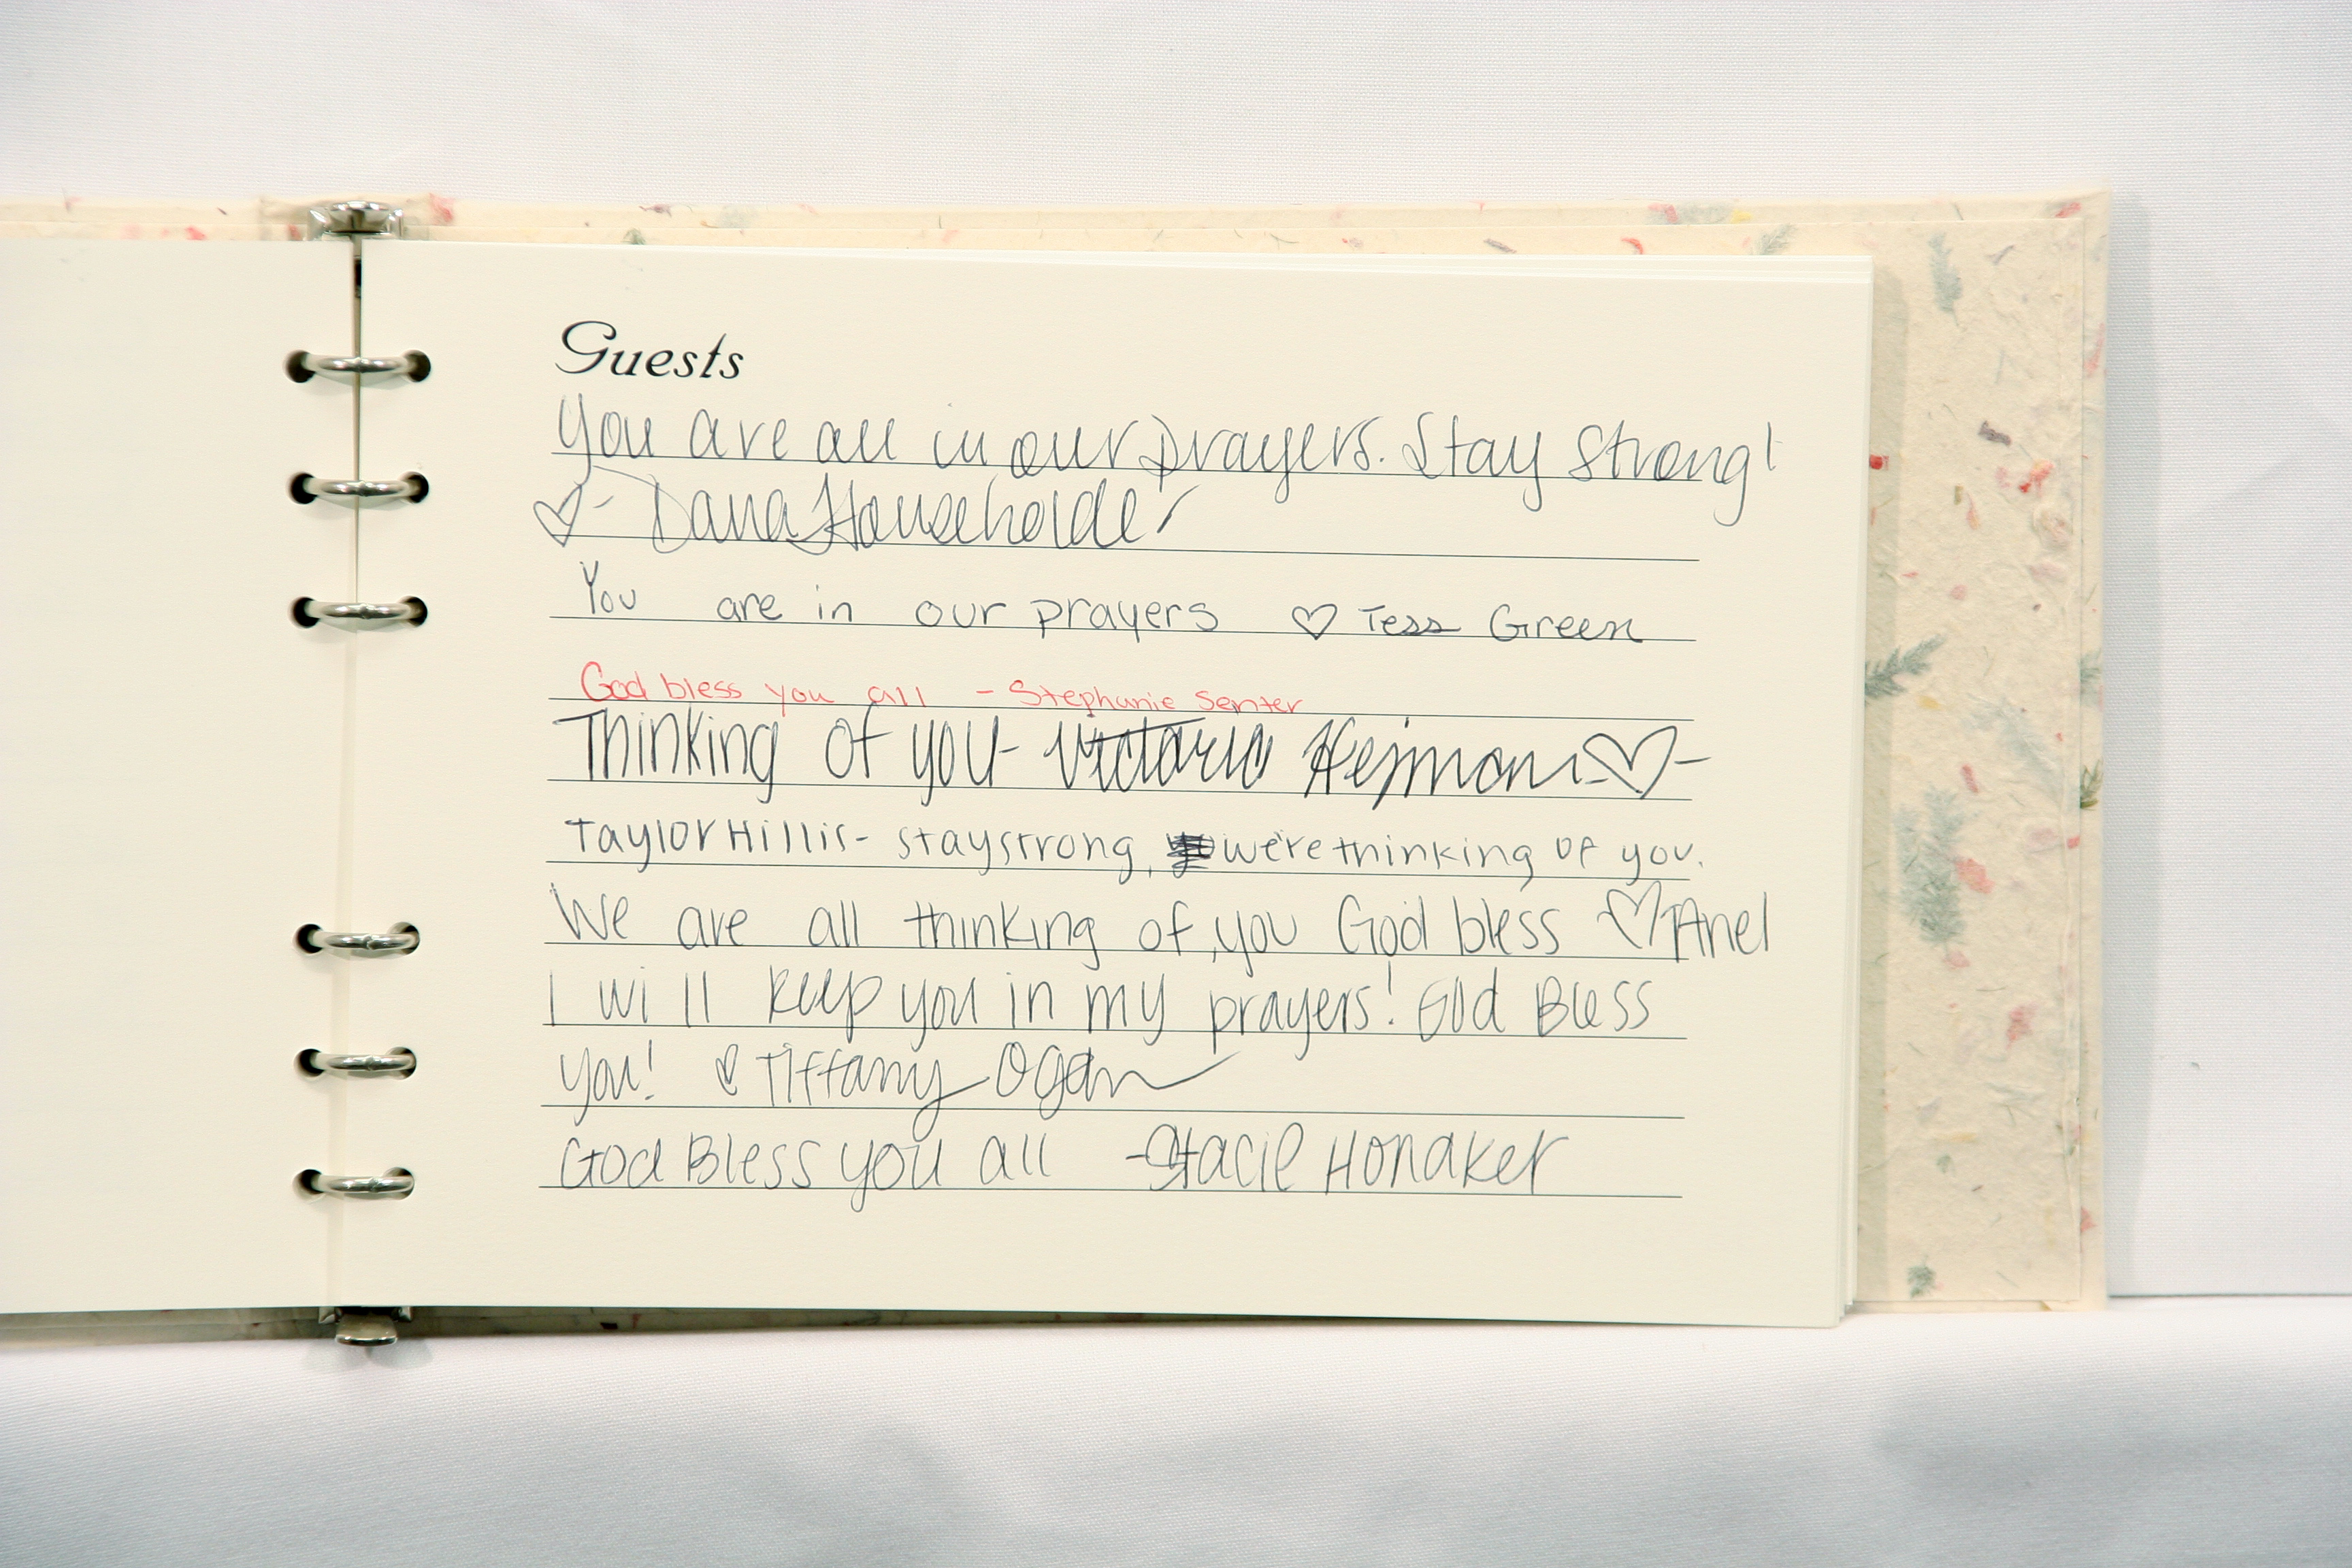 Guests
You are all in our prayers. Stay Strong!
♡- Dana Householder
You are in our prayers ♡ Tess Green
God bless you all - Stephanie Senter
Thinking of you- Victoria Hejmon ♡-
Taylor Hillis- stay strong, we're thinking of you.
We are all thinking of you God bless ♡
I will keep you in my prayers! God Bless
you! ♡ Tiffany Ogan
God Bless you all -Stacie Honaker